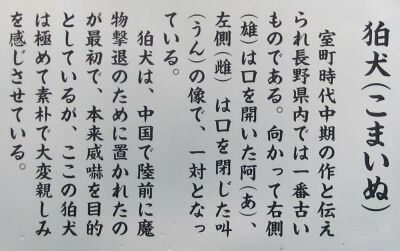 狛犬(こまいぬ)
室町時代中期の作と伝え
られ長野県内では一番古い
ものである。向かって右側
(雄)は口を開いた阿(あ)、
左側(雌)は口を閉じた叫
(うん)の像で、一対となっ
ている。
狛犬は、中国で陸前に魔
物撃退のために置かれたの
が最初で、本来威嚇を目的
としているが、ここの狛犬
は極めて素朴で大変親しみ
を感じさせている。